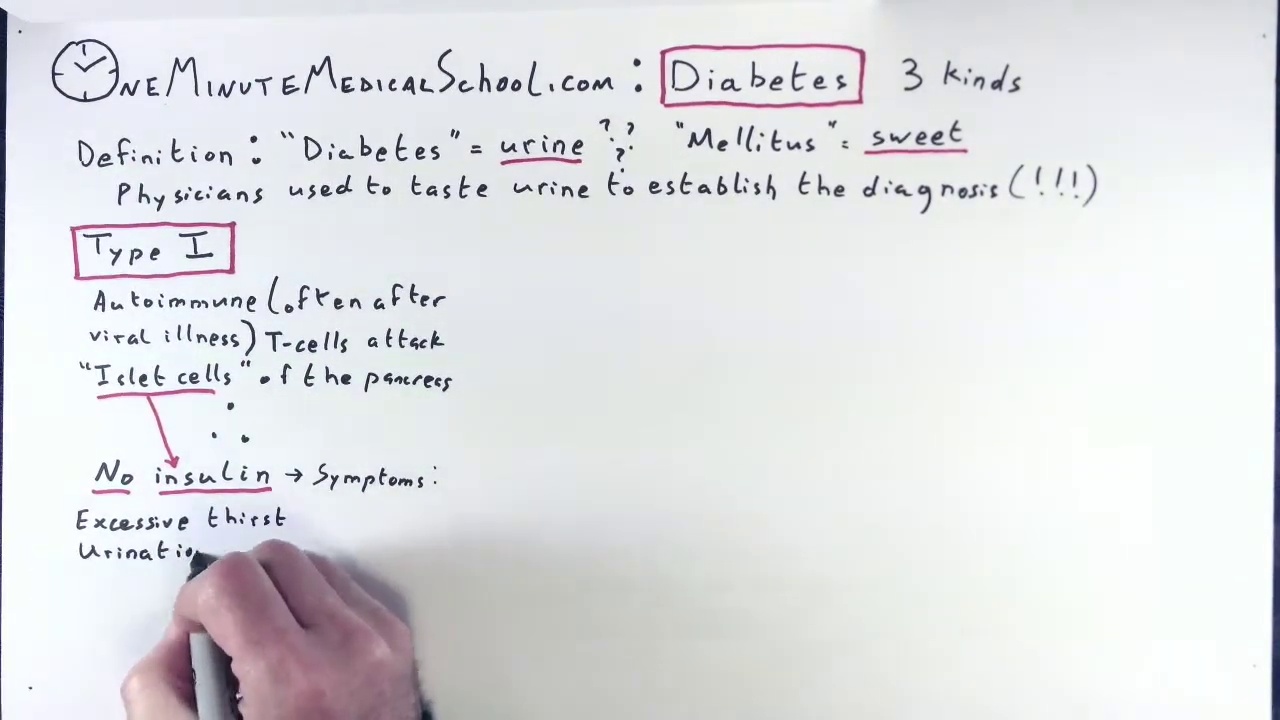 ONEMINUTEMEDICALSCHOOL.COM : Diabetes 3 kinds
Definition : "Diabetes" = urine ??? "Mellitus" = sweet
Physicians used to taste urine to establish the diagnosis (!!!)
Type I
Autoimmune (often after
viral illness) T-cells attack
"Islet cells" of the pancreas
No insulin → Symptoms:
Excessive thirst
Urinatio